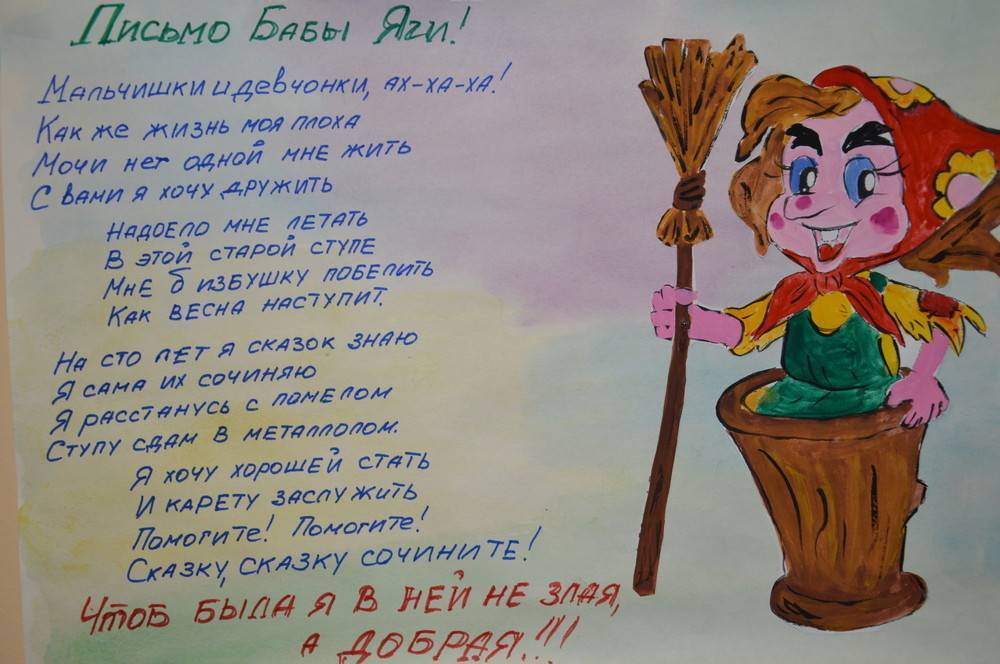 Письмо Бабы Яги!
Мальчишки и девчонки, ах-ха-ха!
Как же жизнь моя плоха
Мочи нет одной мне жить
С вами я хочу дружить
Надоело мне летать
В этой старой ступе
Мне б избушку побелить
Как весна наступит.
На сто лет я сказок знаю
Я сама их сочиняю
Я расстанусь с помелом
Ступу сдам в металлолом.
Я хочу хорошей стать
И карету заслужить
Помогите! Помогите!
Сказку, сказку сочините!
Чтоб была я в ней не злая,
а добрая!!!